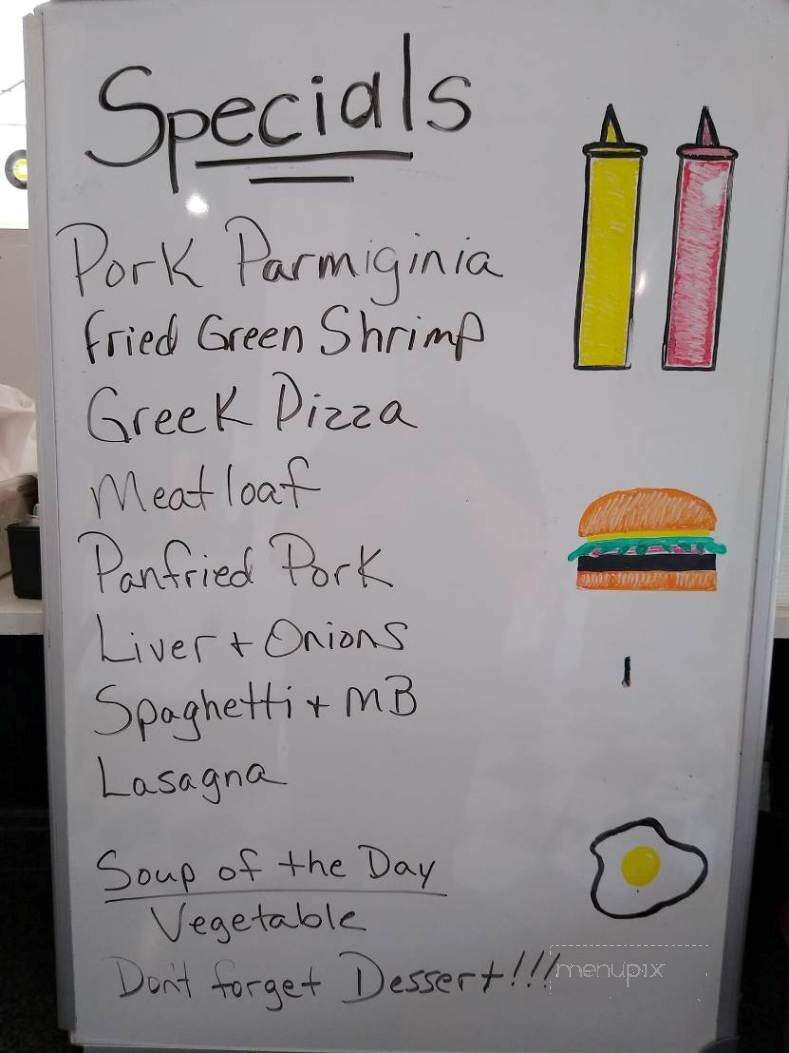 Specials
Pork Parmiginia
Fried Green Shrimp
Greek Pizza
Meatloaf
Panfried Pork
Liver + Onions
Spaghetti + MB
Lasagna
Soup of the Day
Vegetable
Don't forget Dessert!!!
menupix